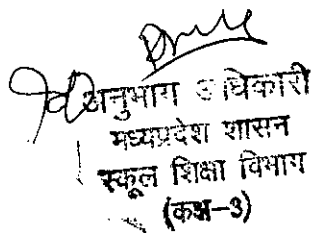 अनुभाग अधिकारी
मध्यप्रदेश शासन
स्कूल शिक्षा विभाग
(कक्ष-3)